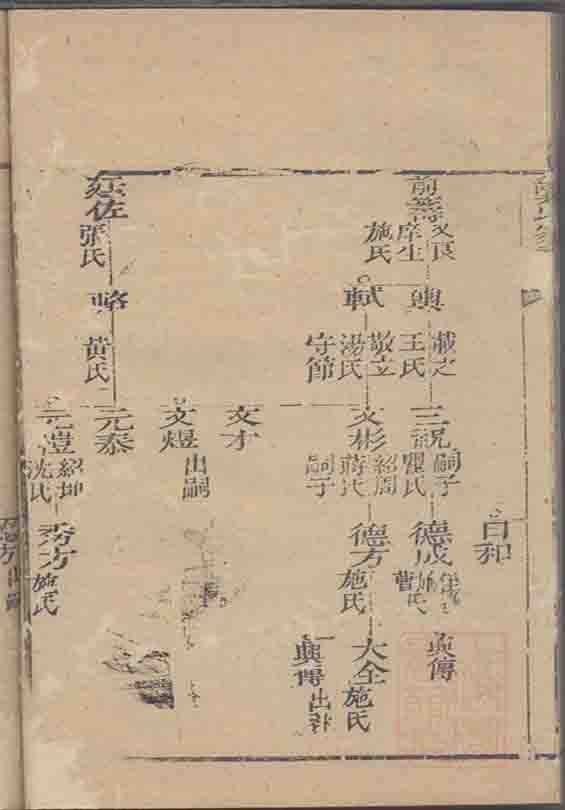 前籌
庠生
施氏
輿
載之
王氏
軾
敬立
湯氏
守節
三祝
嗣子
瞿氏
文彬
紹周
蔣氏
嗣子
文才
文煜
出嗣
自和
德成
曹氏
德方
施氏
興傳
大全
施氏
興傳
出嗣
佐
張氏
略
黃氏
元泰
元澧
紹坤
沈氏
秀方
施氏